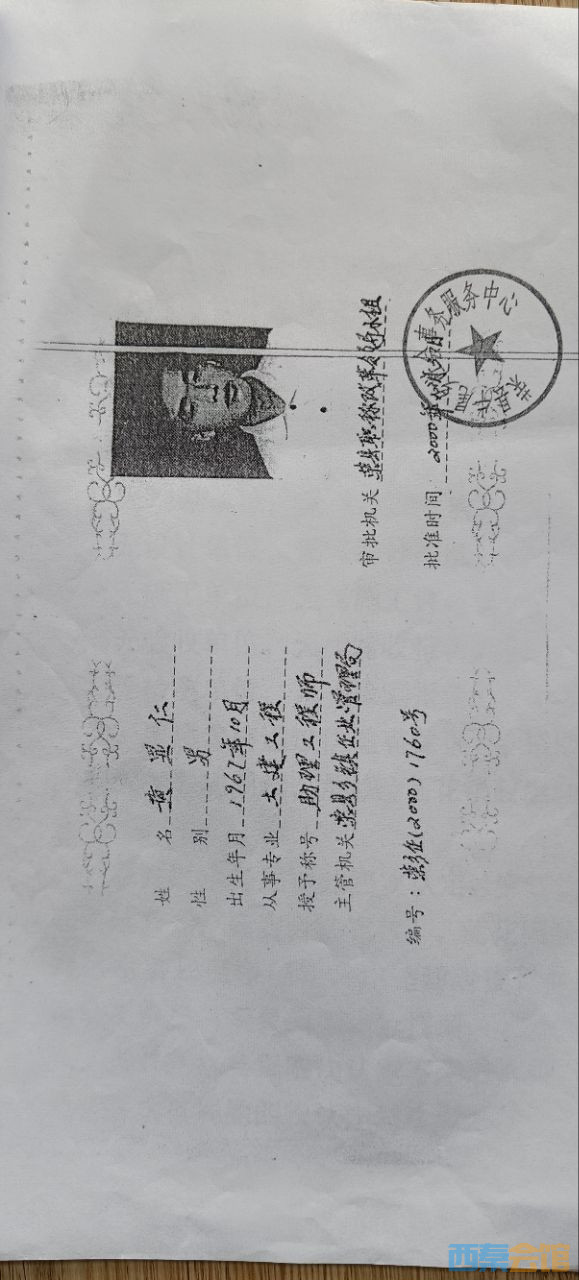 姓 名 黄显仁
性 别 男
出生年月 1967年10月
从事专业 土建工程
授予称号 助理工程师
主管机关 荣县乡镇企业管理局
编号：荣乡企(2000)1760号
审批机关 荣县职称改革领导小组
批准时间：2000年
事务服务中心